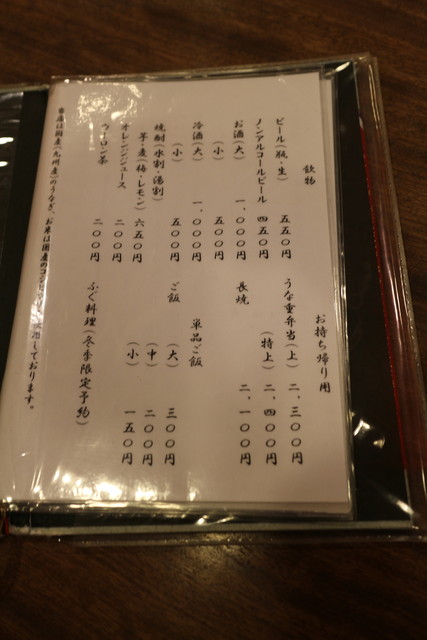 飲物
ビール(瓶・生) 五五〇円
ノンアルコールビール 四五〇円
お酒(大) 一、〇〇〇円
(小) 五〇〇円
冷酒(大) 一、〇〇〇円
(小) 五〇〇円
焼酎(水割・湯割)
芋・麦(梅・レモン) 六五〇円
オレンジジュース 二〇〇円
ウーロン茶 二〇〇円
お持ち帰り用
うな重弁当(上) 二、三〇〇円
(特上) 二、四〇〇円
長焼 二、一〇〇円
単品ご飯
ご飯 (大) 三〇〇円
(中) 二〇〇円
(小) 一五〇円
ふぐ料理(冬季限定予約)
当店は国産(九州産)のうなぎ、お米は国産のコシヒカリ しております。